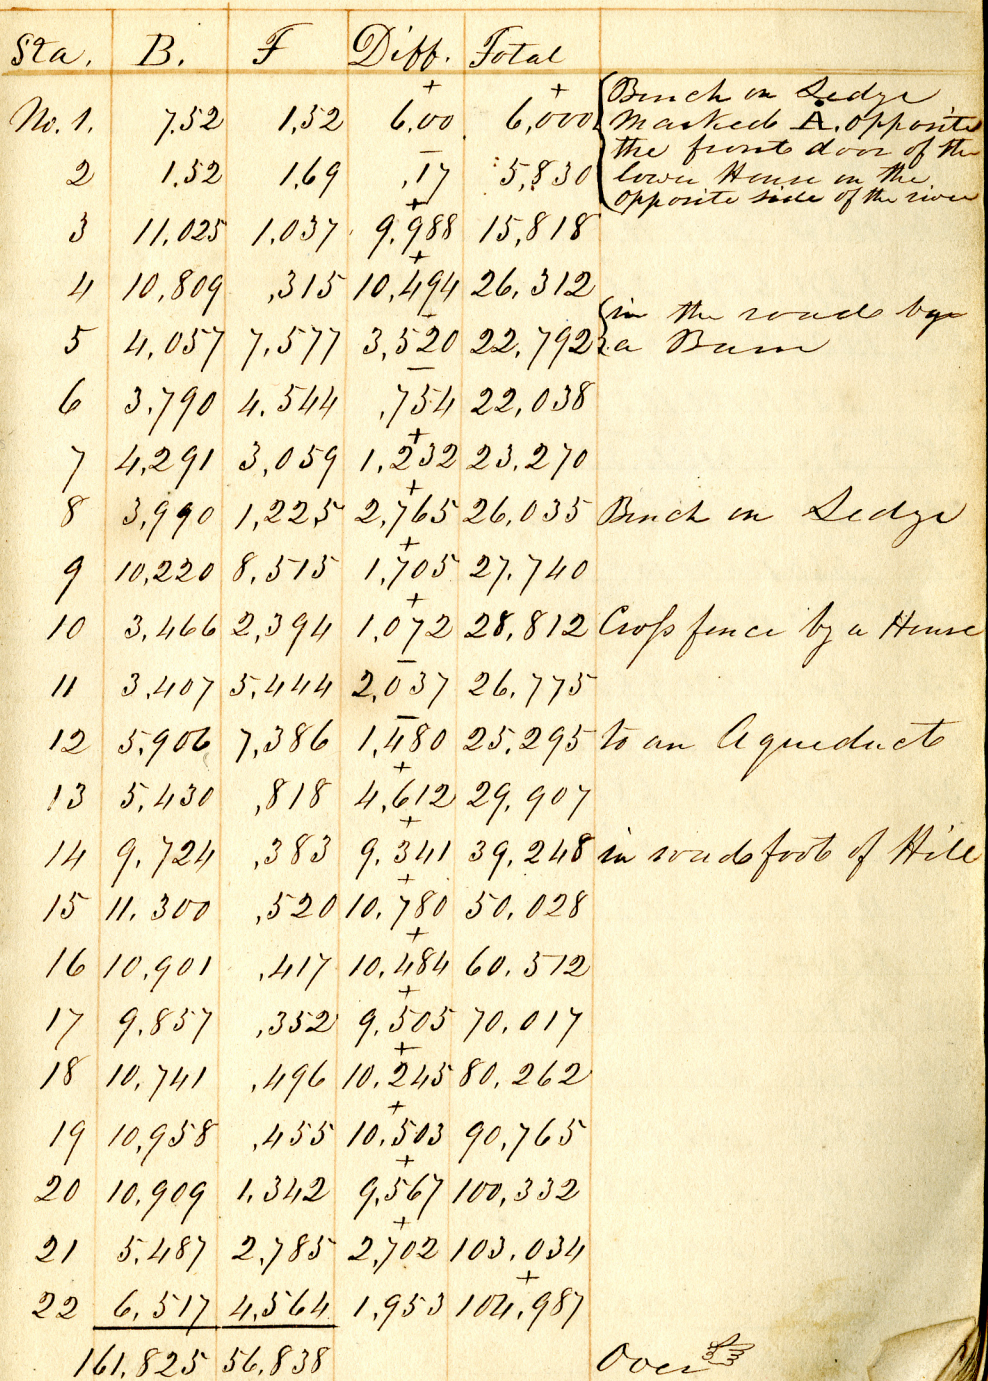 Sta. B. F Diff. Total
+ +
No. 1. 7.52 1,52 6,00 6,000 { Bench on Ledge
Marked A. opposite
the front door of the
−
2 1.52 1,69 ,17 5,830 lower House on the
opposite side of the river
+
3 11,025 1,037 9,988 15,818
+
4 10,809 ,315 10,494 26,312
−
{ in the road by
5 4,057 7,577 3,520 22,792 { a Barn
−
6 3,790 4,544 ,754 22,038
+
7 4,291 3,059 1,232 23,270
+
8 3,990 1,225 2,765 26,035 Bench on Ledge
+
9 10,220 8,515 1,705 27,740
+
10 3,466 2,394 1,072 28,812 Cross fence by a House
−
11 3,407 5,444 2,037 26,775
−
12 5,906 7,386 1,480 25,295 to an Aqueduct
+
13 5,430 ,818 4,612 29,907
+
14 9,724 ,383 9,341 39,248 in road foot of Hill
+
15 11,300 ,520 10,780 50,028
+
16 10,901 ,417 10,484 60,512
+
17 9,857 ,352 9,505 70,017
+
18 10,741 ,496 10,245 80,262
+
19 10,958 ,455 10,503 90,765
+
20 10,909 1,342 9,567 100,332
+
21 5,487 2,785 2,702 103,034
+
22 6,517 4,564 1,953 104,987
161,825 56,838 Over ☞